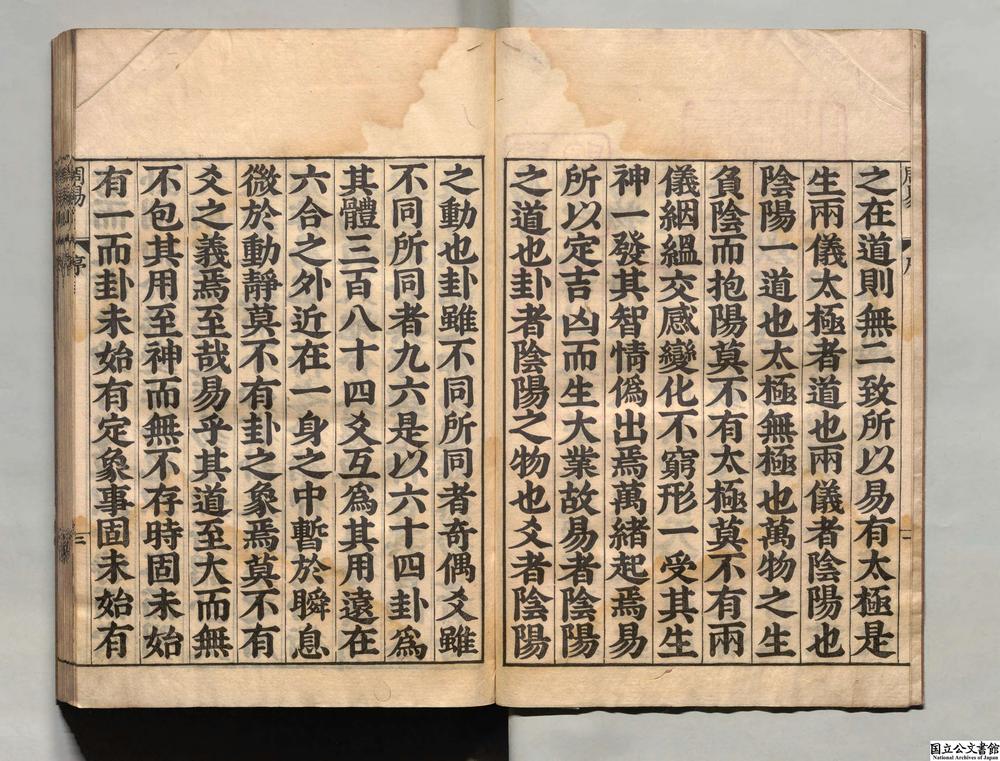 之在道則無二致所以易有太極是
生兩儀太極者道也兩儀者陰陽也
陰陽一道也太極無極也萬物之生
負陰而抱陽莫不有太極莫不有兩
儀絪縕交感變化不窮形一受其生
神一發其智情僞出焉萬緒起焉易
所以定吉凶而生大業故易者陰陽
之道也卦者陰陽之物也爻者陰陽
之動也卦雖不同所同者奇偶爻雖
不同所同者九六是以六十四卦爲
其體三百八十四爻互爲其用遠在
六合之外近在一身之中暫於瞬息
微於動靜莫不有卦之象焉莫不有
爻之義焉至哉易乎其道至大而無
不包其用至神而無不存時固未始
有一而卦未始有定象事固未始有
周易
序
国立公文書館
National Archives of Japan